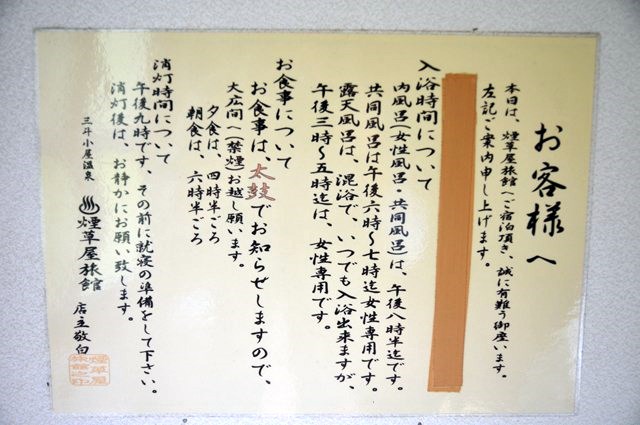 お客様へ
本日は、煙草屋旅館へご宿泊頂き、誠に有難う御座います。
左記ご案内申し上げます。
入浴時間について
内風呂(女性風呂・共同風呂)は、午後八時半迄です。
共同風呂は午後六時～七時迄女性専用です。
露天風呂は、混浴で、いつでも入浴出来ますが、
午後三時～五時迄は、女性専用です。
お食事について
お食事は、太鼓でお知らせしますので、
大広間へ(禁煙)お越し願います。
夕食は、四時半ごろ
朝食は、六時半ごろ
消灯時間について
午後九時です、その前に就寝の準備をして下さい。
消灯後は、お静かにお願い致します。
三斗小屋温泉
♨煙草屋旅館 店主敬白